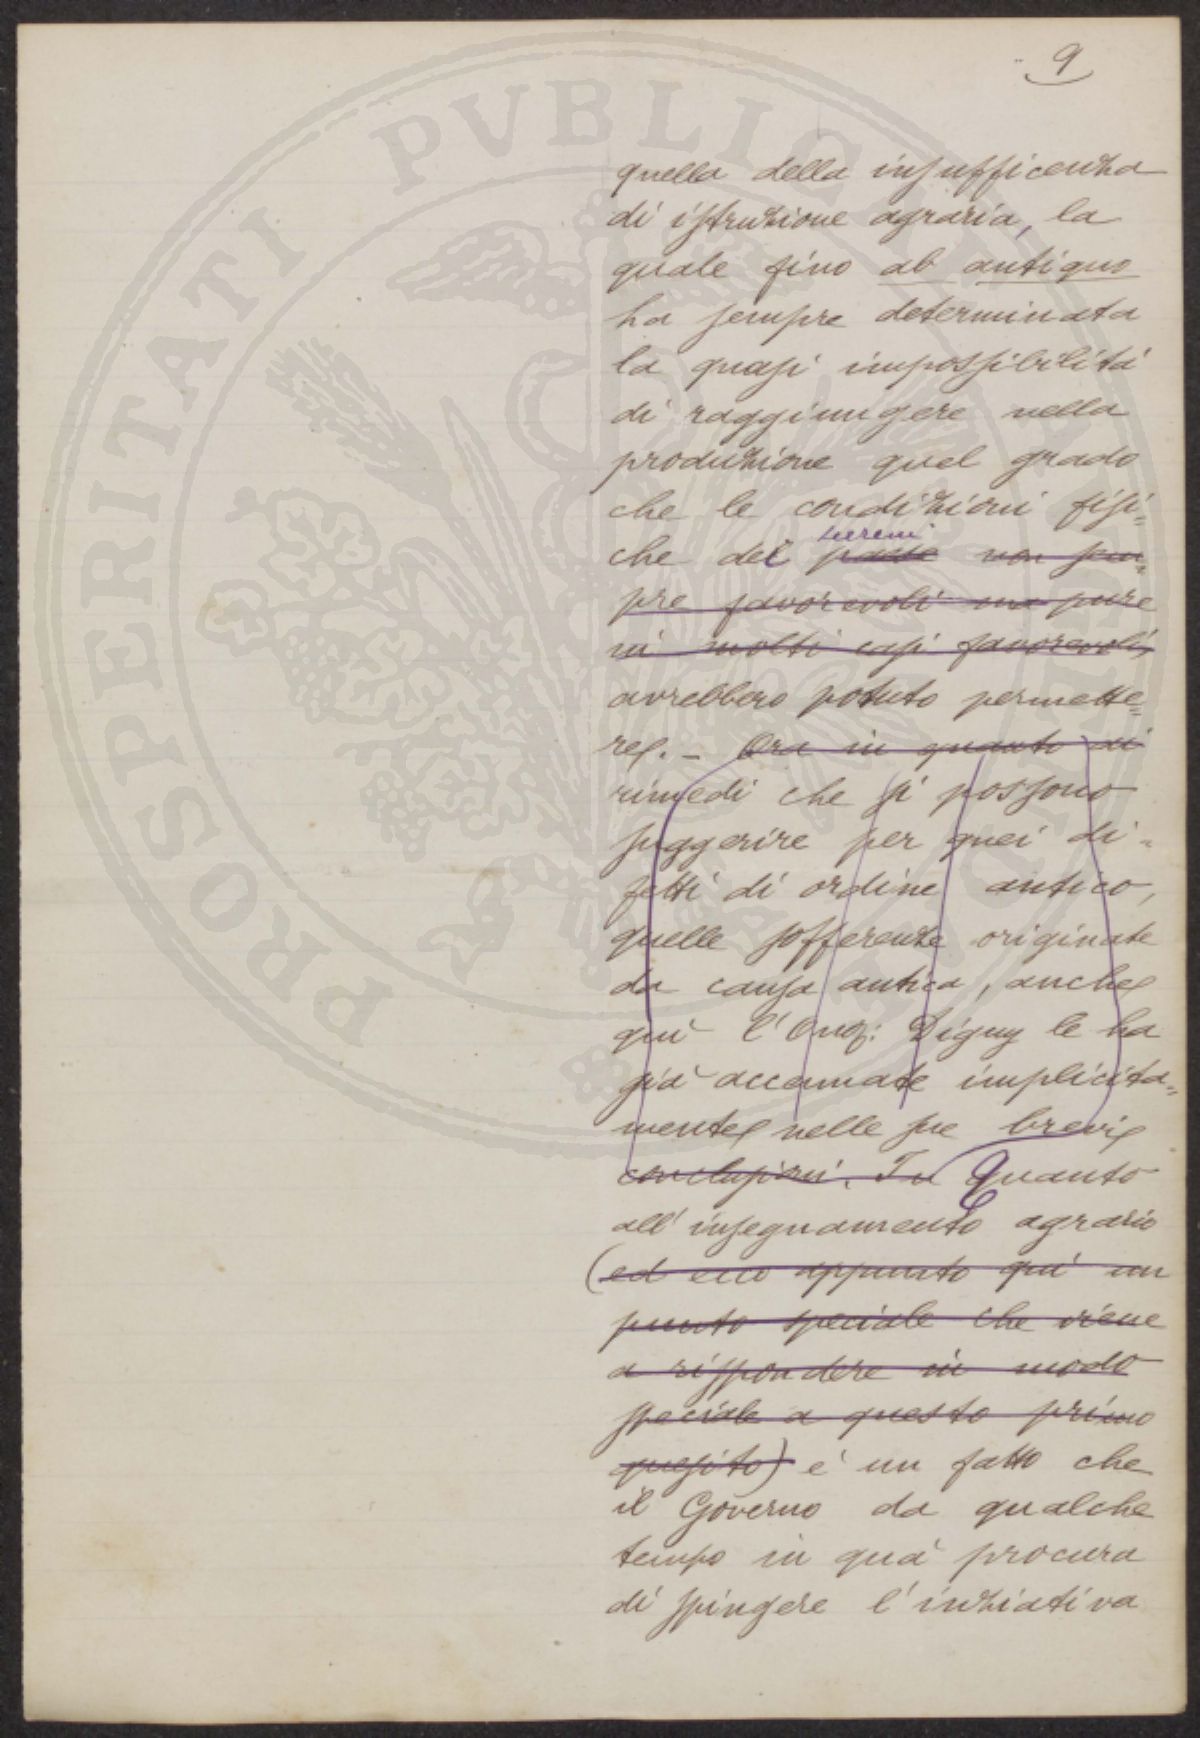 9
quella della insufficenza
di istruzione agraria, la
quale fino ab antiquo
ha sempre determinata
la quasi impossibilità
di raggiungere nella
produzione quel grado
che le condizioni fisi=
terreni
che del paese non sem=
pre favorevoli ma pure
in molti casi favorevoli,
avrebbero potuto permette=
re. – Ora in quanto di
rimedi che si possono
suggerire per quei di=
fetti di ordine antico,
quelle sofferenze originate
da causa antica, anche
qui l'Onor: Digny le ha
già accennate implicita=
mente nelle sue brevi
conclusioni. In Quanto
all'insegnamento agrario
(ed ecco appunto qui un
punto speciale che viene
a rispondere in modo
speciale a questo primo
quesito) è un fatto che
il Governo da qualche
tempo in quà procura
di spingere l'inziativa
PROSPERITATI PUBLICAE